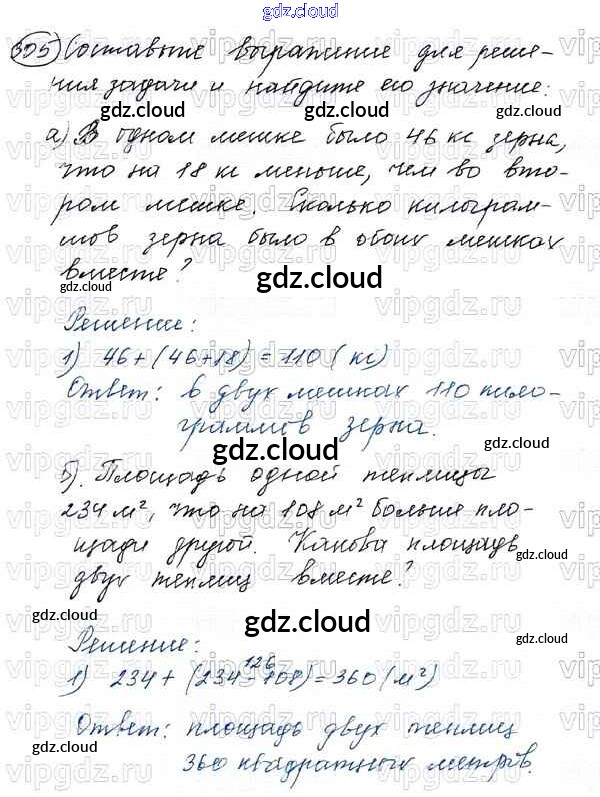 gdz.cloud
395 Составьте выражение для реше-
ния задачи и найдите его значение:
gdz.cloud gdz.cloud
а) В одном мешке было 46 кг зерна,
что на 18 кг меньше, чем во вто-
ром мешке. Сколько килограм-
мов зерна было в обоих мешках
вместе?
gdz.cloud
Решение:
1) 46+(46+18)=110 (кг)
gdz.cloud gdz.cloud
Ответ: в двух мешках 110 кило-
граммов зерна.
gdz.cloud
б). Площадь одной теплицы
234 м², что на 108 м² больше пло-
щади другой. Какова площадь
двух теплиц вместе?
gdz.cloud
gdz.cloud
gdz.cloud
Решение:
gdz.cloud
126
1) 234+(234-108)=360 (м²)
Ответ: площадь двух теплиц
gdz.cloud gdz.cloud
360 квадратных метров.
vipgdz.ru